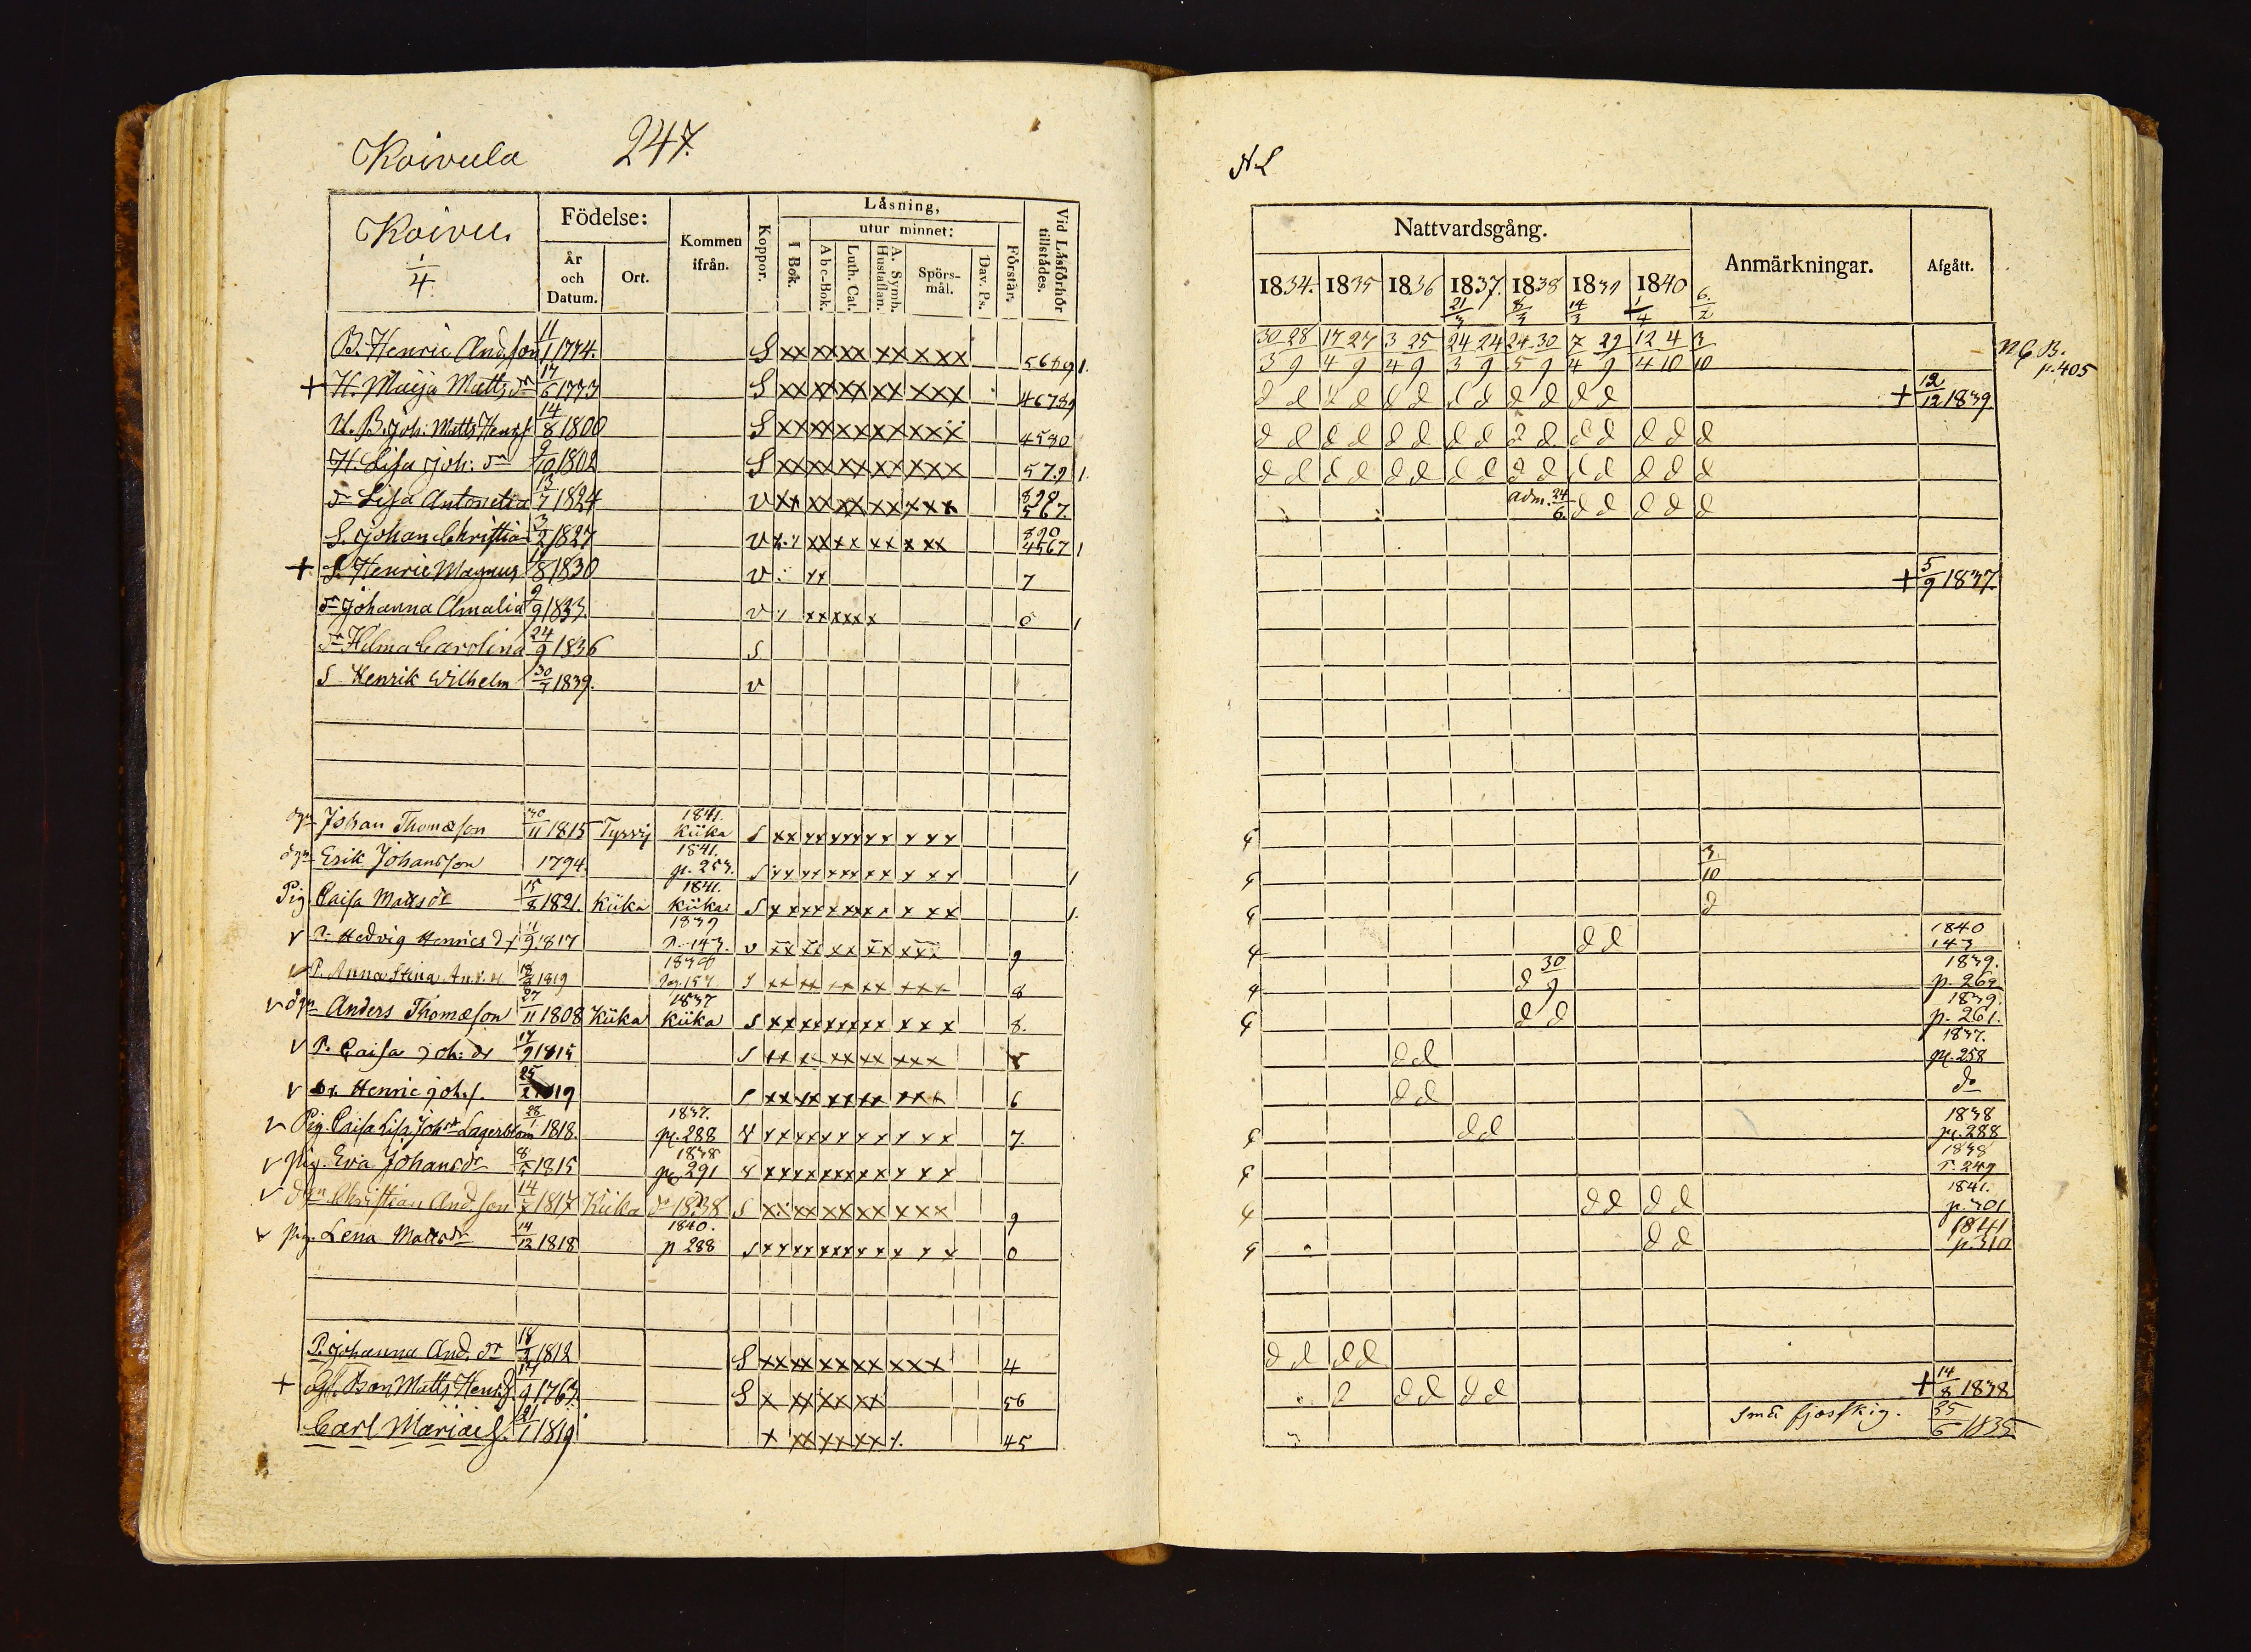 Koivula 247.
Koivu.
1/4
Födelse:
År och Datum.
Ort.
Kommen ifrån.
Koppor.
Låsning,
I Bok.
utur minnet:
Abc-Bok.
Luth. Cat.
A. Symb. Hustaflan.
Spörs-mål.
Dav. Ps.
Förstår.
Vid Låsförhör tillstådes.
B. Henric And.son 11/1 1774. S xx xx xx xx xxx 1.
+ H. Maija Matts dr 17/6 1773 S xx xx xx xx xxx 46789
U. B. Joh: Matts Henr.s. 14/8 1800 S xx xx xx xx xxx 4530
H. Lisa Joh: dr 9/10 1802 S xx xx xx xx xxx 579 1.
dr Lisa Antonetta 13/7 1824 v xx xx xx xx xxx 898 567.
S. Johan Christian 3/2 1827 v xx xx xx xxx 890 4567 1
+ S. Henric Magnus /8 1830 v xx 7
dr Johanna Amalia 9/9 1833 v xx xxx x 0 1
dr Helma Carolina 24/9 1836 s
S Henrik Wilhelm 30/7 1839. v
dgn Johan Thomæson 30/11 1815 Tyrvis 1841. Kiika s xx xx xx xx xxx
dgn Erik Johansson 1794. 1841. p. 253. s xx xx xxx xx xxx 1
Pig. Caisa Mattsdr 15/8 1821. Kiika 1841. Kiika s xx xx xx xx xxx 1.
v P. Hedvig Henrics dr 11/9 1817 1839 P. 143. v xx xx xx xx xxx 9
v P. Anna Stina And. dr 18/ 1819 Pag. 157 s xx xx xx xx xxx 8
v dgn Anders Thomæson 27/11 1808 Kiika 1837 Kiika s xx xx xx xx xxx 8.
v P. Caisa Joh: dr 17/9 1815 s xx xx xx xx xxx
v Dr. Henric Joh.s. 25/ 1819 s xx xx xx xx xxx 6
v Pig. Caisa Lisa Johsdr Lagerblom 28/1 1818. 1837. p. 288 v xx xx xx xx xxx 7.
v Pig. Eva Johansdr 8/5 1815 1838 p 291 v xx xx xx xx xxx
v dgn Christian And.son 14/7 1817 Kiika dr 1838 s xx xx xx xx xxx 9
v Pig. Lena Mattsdr 14/12 1818 1840. p 288 s xx xx xx xx xxx 0
P. Johanna And. dr 18/ 1812 S xx xx xx xx xxx 4
+ Bon Matts Henr.s. 17/9 1763. S x xx xx xx 56
Carl Mariæ S. 21/1 1819 x xx xx xx 45
N L
Nattvardsgång.
Anmärkningar.
Afgått.
1834. 1835 1836 1837. 1838 1839 1840
21/3 8/3 14/3 1/4 6./2
30/3 28/9 17/4 27/9 3/4 25/9 24/3 24/9 24/5 30/9 7/4 29/9 12/4 4/10 3/10
N C B. p. 405
d d d d d d d d d d d d + 12/12 1839.
d d d d d d d d d d d d d d d
d d d d d d d d d d d d d d d
adm. 24/6. d d d d d
+ 5/9 1837.
3/10
d
d d 1840 143
d 30/9 1839. p. 269
d d 1839. p. 261.
d d 1837. p. 258
d d do
d d 1838 p. 288
1838 P. 249
d d d d 1841. p. 301
d d 1841 p. 310
d d d d
d d d d d + 14/8 1838
små fjosskig. 25/6 1835